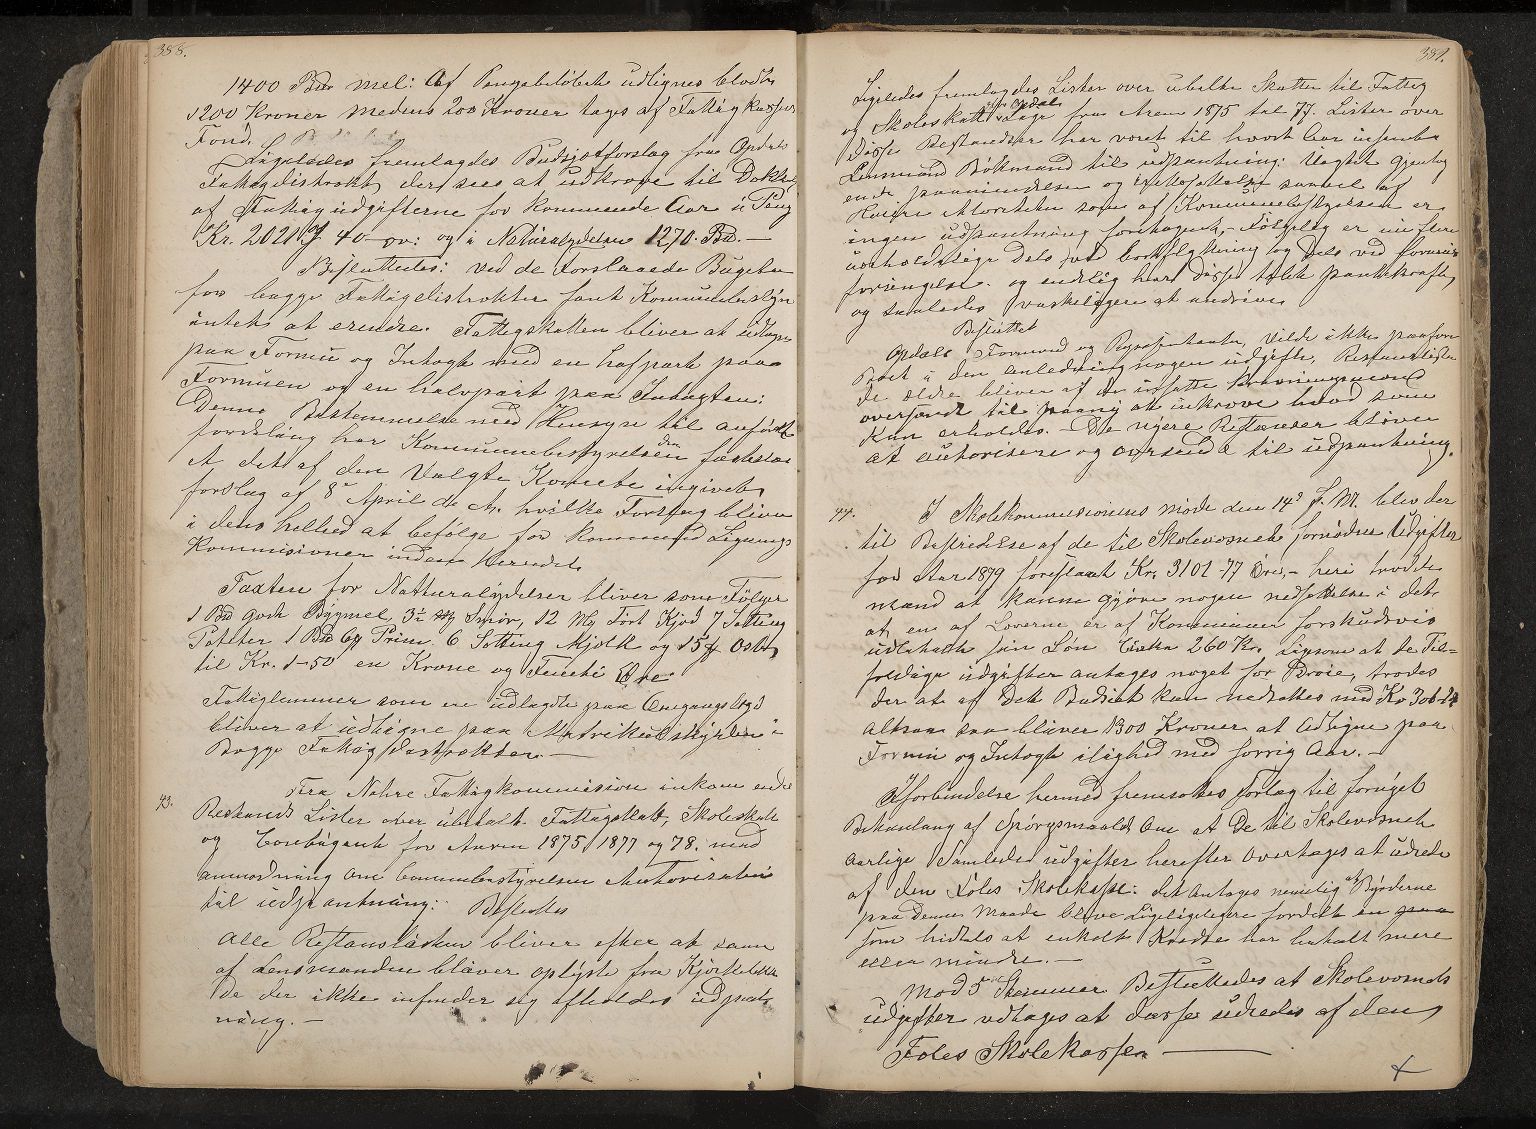 388.
1400 Bd mel: Af Pengebeløbet udlignes blodt
1200 Kroner medens 200 Kroner tages af Fattigkassens
Fond.
Ligeledes fremlagdes Budsjetforslag fra Opdals
Fattigdistrikt, der sees at udkræve til Dækkelse
af Fattigudgifterne for kommende Aar i Peng
Kr. 2021 40 ov: og i Naturalydelse 1270 Bd. —
Besluttedes: ved de Forslaaede Bugetter
for begge Fattigdistrikter fant Komunebestyr
intet at erendre. Fattegskatten bliver at udligne
paa Formue og Intægt med en halpart paa
Formuen og en halvpart paa Intægten:
Denne Bestemmelse med Hensyn til anført
fordeling har Kommunebestyrelsen den fastslaa
et det af den Valgte Komite ingivet
forslag af 8 April d. A. hvilke Forslag bliver
i dens helhed at befølge for kommend Lignings
Kommisioner inden Herredet
Taxten for Natturalydelser bliver som Følger
1 Bd godt Bygmel, 3½ Smør, 12 Mk Tørt Kjød 7 Sætting
Poteter 1 Bd Prim, 6 Sætting Mjølk og 15 Ost,
til Kr. 1-50 en Krone og Femti Øre
Fattiglemmer som er udlagdte paa Omgangs lægd
bliver at udligne paa Matrikulskylden i
Begge Fattigdistrikter. —
43.
Fra Nohre Fattigkommission inkom endel
Restands Lister over ubetalt Fattigskatt, Skoleskatt
og for Aaren 1875, 1877 og 78. med
anmodning om Commubestyrelsen Autorisation
til udpantning: Besluttes
Alle Restanslister bliver efter at som
af Lensmanden bliver oplyste fra Kjørstelekke
De der ikke infinder sig afholdes udpant
ning. —
389.
Ligeledes fremlagdes Lister over ubetalte Skatter til Fattig
og Skoleskatt for Opdal Lægr fra Aren 1875 til 77. Lister over
disse Restandser har voret til hvort Aar insendte
Lensmand Bökmand til udpantning: Uagtet gjentag
ende paamindelser og saavel af
Høiere Atoriteter som af Kommunebestyrelsen er
ingen udpantning foretaget, - Følgelig er nu flere
uerholdelige Dels ved bortflytning og Dels ved formues
foringelse. og endlig har disse tabt pantekraft,
og saaledes vaskeligere at indrive
Besluttet
Opdals Formend og Representanter, Vilde ikke paaføre
Brœt i den anledning nogen udgifter, Restandslister
de eldre bliver af de insatte Kræmningsmænd
oversendt til paany at inkræve hvad som
Kan erholdes. — De nyere Restanser bliver
at autorisere og oversende til udpantning.
44.
I Skolekommissionens møde den 14 d. M. blev der
til Bestridelse af de til Skolevæsnet fornødne Udgifter
for Aar 1879 foreslaaet Kr. 3101-77 Øre, – heri trodde
mand at kunne gjøre nogen nedsættelse i det
at en af Lærerne er af Kommunen forskudsvis
udbetalt sin Løn Cirka 260 Kr. Ligsom at de Til=
feldige udgifter antages noget for Drøie, trodes
der at af Det Budsiet kan nedsattes med Kr. 306-24
altsaa saa bliver 1300 Kroner at udligne paa
Formue og Intægt ilighed med forrig Aar. —
Iforbindelse hermed fremsattes forlag til fornyet
Behanlang af Spørgsmaalet Om at De til Skolevæsnet
aarlige Samlede udgifter herefter overtages at udrede
af den Føles Skolekasse: det antages nemelig at Byrderne
paa Denne Maade blive Ligeligelegere fordelt en paa
som hidtels at enkelt Kredse har betalt mere
eller mindre. —
Mod 5 Stemmer Besluttedes at Skolevæsnets
udgifter vdtages at disse udredes af den
Føles Skolekassen —